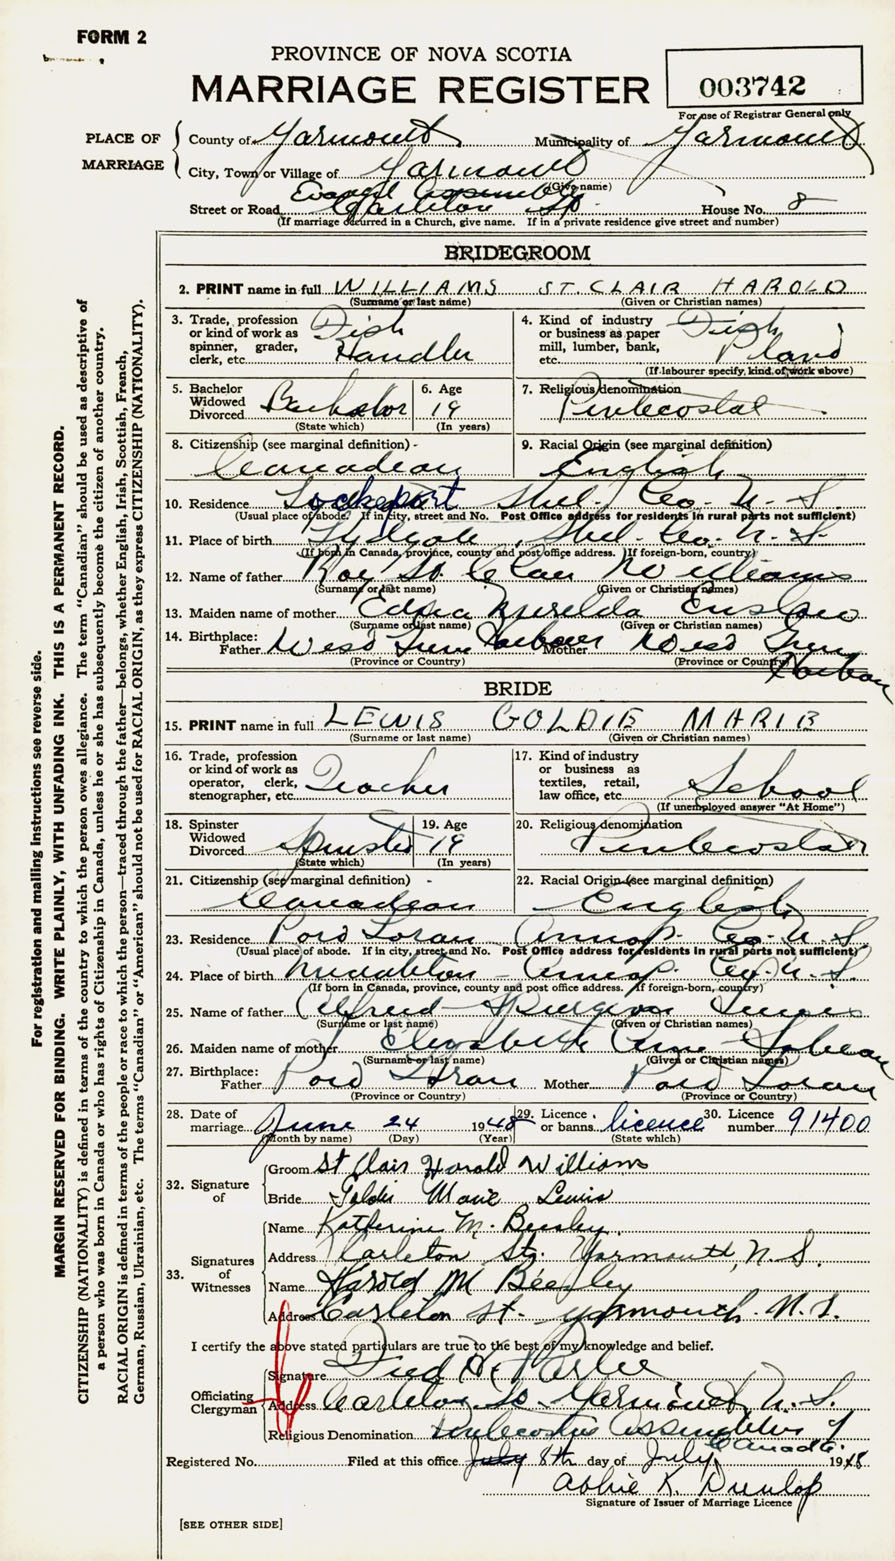 FORM 2
PROVINCE OF NOVA SCOTIA
MARRIAGE REGISTER
003742
For use of Registrar General only
PLACE OF MARRIAGE
County of Yarmouth Municipality of Yarmouth
City, Town or Village of Yarmouth
(Give name)
Evangel Assembly
Street or Road Carleton St. House No. 8
(If marriage occurred in a Church, give name. If in a private residence give street and number)
BRIDEGROOM
2. PRINT name in full WILLIAMS ST. CLAIR HAROLD
(Surname or last name) (Given or Christian names)
3. Trade, profession or kind of work as spinner, grader, clerk, etc. Fish Handler
4. Kind of industry or business as paper mill, lumber, bank, etc. Fish Plant
(If labourer specify, kind of work above)
5. Bachelor Widowed Divorced Bachelor
(State which)
6. Age 19
(In years)
7. Religious denomination Pentecostal
8. Citizenship (see marginal definition) - Canadian
9. Racial Origin (see marginal definition) English
10. Residence Lockeport Shel. Co. N.S
(Usual place of abode. If in city, street and No. Post Office address for residents in rural parts not sufficient)
11. Place of birth Lydgate, Shel. Co. N.S.
(If born in Canada, province, county and post office address. If foreign-born, country)
12. Name of father Roy St. Clair Williams
(Surname or last name) (Given or Christian names)
13. Maiden name of mother Edna Murilda Enslow
(Surname or last name) (Given or Christian names)
14. Birthplace: Father West Green Harbour Mother West Green Harbour
(Province or Country) (Province or Country)
BRIDE
15. PRINT name in full LEWIS GOLDIE MARIE
(Surname or last name) (Given or Christian names)
16. Trade, profession or kind of work as operator, clerk, stenographer, etc. Teacher
17. Kind of industry or business as textiles, retail, law office, etc. School
(If unemployed answer "At Home")
18. Spinster Widowed Divorced Spinster
(State which)
19. Age 19
(In years)
20. Religious denomination Pentecostal
21. Citizenship (see marginal definition) - Canadian
22. Racial Origin (see marginal definition) English
23. Residence Port Loran Annap. Co. N.S
(Usual place of abode. If in city, street and No. Post Office address for residents in rural parts not sufficient)
24. Place of birth Middleton - Annap. Co. N.S.
(If born in Canada, province, county and post office address. If foreign-born, country)
25. Name of father Alfred Spurgeon Lewis
(Surname or last name) (Given or Christian names)
26. Maiden name of mother Elizabeth Ann Sabean
(Surname or last name) (Given or Christian names)
27. Birthplace: Father Port Loran Mother Port Loran
(Province or Country) (Province or Country)
28. Date of marriage June 24 1948
(Month by name) (Day) (Year)
29. Licence or banns licence
(State which)
30. Licence number 91400
32. Signature of
Groom St Clair Harold Williams
Bride Goldie Marie Lewis
33. Signatures of Witnesses
Name Katherine M. Beesley
Address Carleton St. Yarmouth, N.S.
Name Harold M Beesley
Address Carleton St. Yarmouth. N.S.
I certify the above stated particulars are true to the best of my knowledge and belief.
Officiating Clergyman
Signature Fred H. Parlee
Address Carleton St Yarmouth, N.S.
Religious Denomination Pentecostal Assemblies of Canada.
Registered No. Filed at this office July 8th day of July 1948
Abbie K. Dunlop
Signature of Issuer of Marriage Licence
[SEE OTHER SIDE]
For registration and mailing instructions see reverse side.
MARGIN RESERVED FOR BINDING. WRITE PLAINLY, WITH UNFADING INK. THIS IS A PERMANENT RECORD.
CITIZENSHIP (NATIONALITY) is defined in terms of the country to which the person owes allegiance. The term "Canadian" should be used as descriptive of
a person who was born in Canada or who has rights of Citizenship in Canada, unless he or she has subsequently become the citizen of another country.
RACIAL ORIGIN is defined in terms of the people or race to which the person—traced through the father—belongs, whether English, Irish, Scottish, French,
German, Russian, Ukrainian, etc. The terms "Canadian" or "American" should not be used for RACIAL ORIGIN, as they express CITIZENSHIP (NATIONALITY).